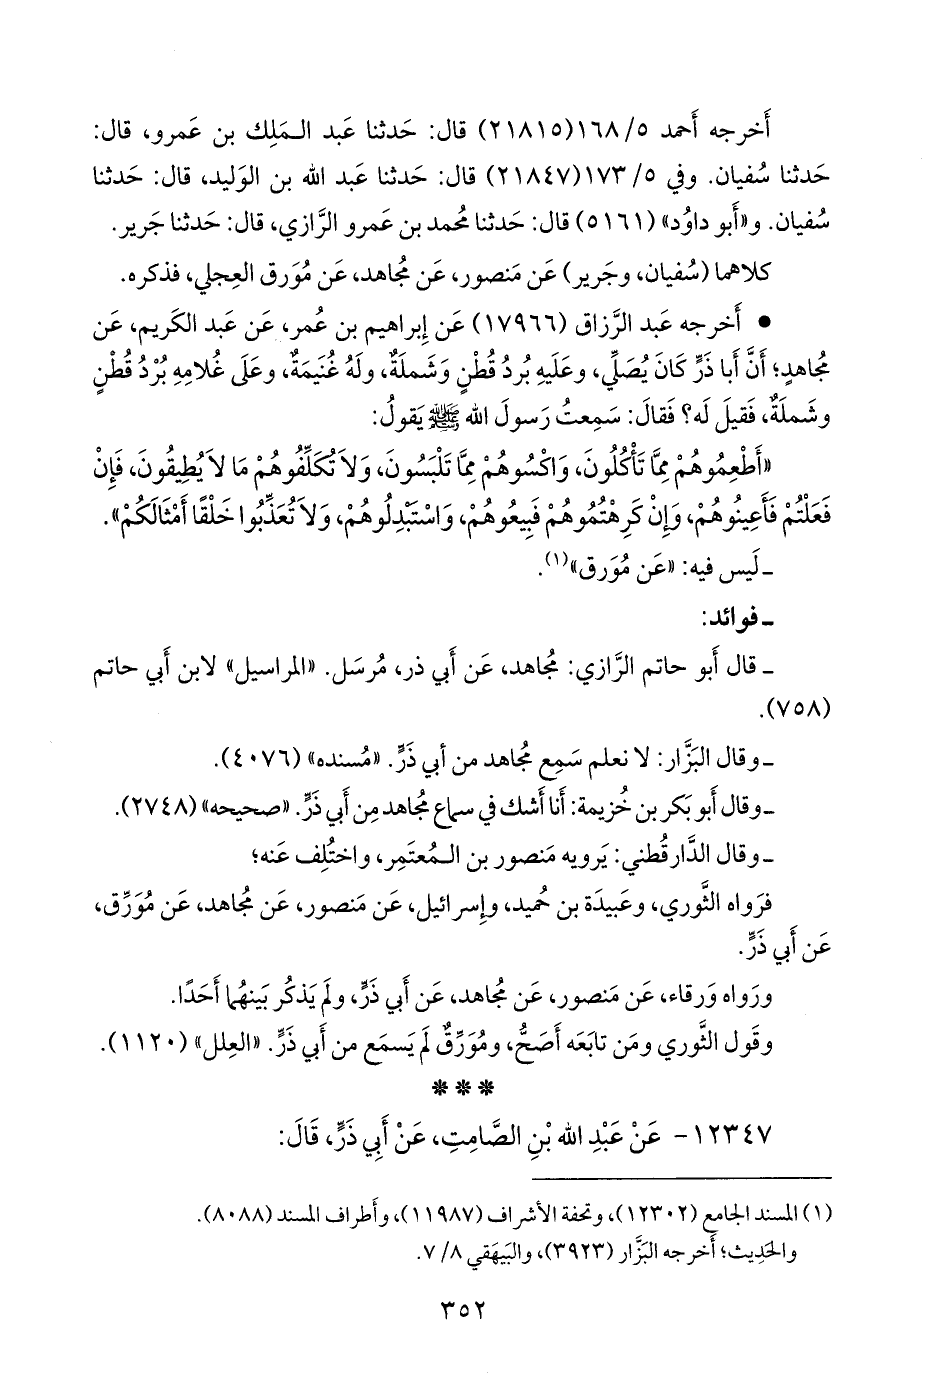 أَخرجه أَحمد ٥/ ١٦٨(٢١٨١٥) قال: حَدثنا عَبد الـمَلِك بن عَمرو، قال:
حَدثنا سُفيان. وفي ٥/ ١٧٣(٢١٨٤٧) قال: حَدثنا عَبد الله بن الوَليد، قال: حَدثنا
سُفيان. و«أَبو داوُد» (٥١٦١) قال: حَدثنا مُحمد بن عَمرو الرَّازي، قال: حَدثنا جَرير.
كلاهما (سُفيان، وجَرير) عَن مَنصور، عَن مُجاهد، عَن مُوَرق العِجلي، فذكره.
• أَخرجه عَبد الرَّزاق (١٧٩٦٦) عَن إِبراهيم بن عُمر، عَن عَبد الكَريم، عَن
مُجاهدٍ؛ أَنَّ أَبا ذَرٍّ كَانَ يُصَلِّي، وعَلَيهِ بُردُ قُطْنٍ وَشَملَةٌ، ولَهُ غُنَيمَةٌ، وعَلَى غُلامِهِ بُرْدُ قُطْنٍ
وشَملَةٌ، فَقيلَ لَه؟ فَقالَ: سَمِعتُ رَسولَ الله ﷺ يَقولُ:
«أَطْعِمُوهُمْ مِمَّا تَأْكُلُونَ، وَاكْسُوهُمْ مِمَّا تَلْبَسُونَ، وَلاَ تُكَلِّفُوهُمْ مَا لاَ يُطِيقُونَ، فَإِنْ
فَعَلْتُمْ فَأَعِينُوهُمْ، وَإِنْ كَرِهْتُمُوهُمْ فَبِيعُوهُمْ، وَاسْتَبْدِلُوهُمْ، وَلاَ تُعَذِّبُوا خَلْقًا أَمْثَالَكُمْ».
ـ لَيس فيه: «عَن مُوَرق»(١).
ـ فوائد:
ـ قال أَبو حاتم الرَّازي: مُجاهد، عَن أَبي ذر، مُرسَل. «المراسيل» لابن أَبي حاتم
(٧٥٨).
ـ وقال البَزَّار: لا نعلم سَمِع مُجاهد من أَبي ذَرٍّ. «مُسنده» (٤٠٧٦).
ـ وقال أَبو بَكر بن خُزيمة: أَنا أَشك في سماع مُجاهد مِن أَبي ذَرٍّ. «صحيحه» (٢٧٤٨).
ـ وقال الدَّارقُطني: يَرويه مَنصور بن الـمُعتَمِر، واختُلِف عَنه؛
فرَواه الثَّوري، وعَبيدَة بن حُميد، وإِسرائيل، عَن مَنصور، عَن مُجاهد، عَن مُوَرِّق،
عَن أَبي ذَرٍّ.
ورَواه وَرقاء، عَن مَنصور، عَن مُجاهد، عَن أَبي ذَرٍّ، ولَم يَذكُر بَينهُما أَحَدًا.
وقَول الثَّوري ومَن تابَعَه أَصَحُّ، ومُوَرِّقٌ لَم يَسمَع من أَبي ذَرٍّ. «العِلل» (١١٢٠).
* * *
١٢٣٤٧- عَنْ عَبْدِ الله بْنِ الصَّامِتِ، عَنْ أَبِي ذَرٍّ، قَالَ:
(١) المسند الجامع (١٢٣٠٢)، وتحفة الأشراف (١١٩٨٧)، وأَطراف المسند (٨٠٨٨).
والحَدِيث؛ أَخرجه البَزَّار (٣٩٢٣)، والبَيهَقي ٨/ ٧.
٣٥٢